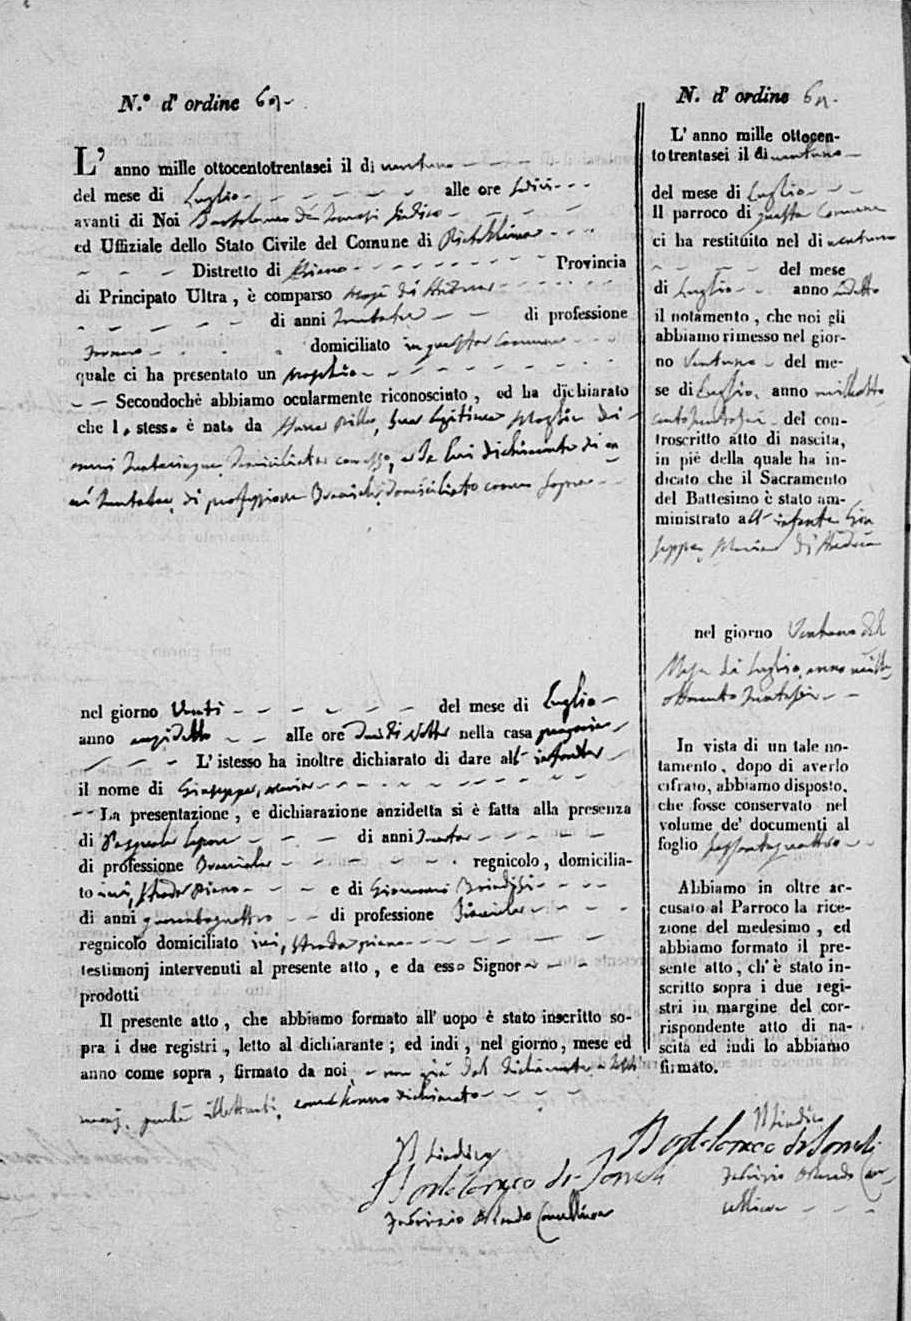 N.° d' ordine 69.
L' anno mille ottocentotrentasei il dì ventuno
del mese di Luglio alle ore
avanti di Noi Bartolomeo di Sindico
ed Uffiziale dello Stato Civile del Comune di
Distretto di Ariano Provincia
di Principato Ultra, è comparso
di anni professione
domiciliato in questo Comune
quale ci ha presentato un maschio
Secondochè abbiamo ocularmente riconosciuto, ed ha dichiarato
che l. stesso è nato da sua legitima moglie di
anni trentacinque domiciliata con esso, e da lui dichiarante di an
ni di professione domiciliato come sopra
nel giorno Venti del mese di Luglio
anno anzidetto alle ore nella casa propria
L'istesso ha inoltre dichiarato di dare all' infante
il nome di Giuseppe, Maria
La presentazione, e dichiarazione anzidetta si è fatta alla presenza
di Pasquale di anni trenta
di professione Bracciale regnicolo, domicilia-
to ivi, strada Piano e di Giovanni Brindisi
di anni quarantaquattro di professione Bracciale
regnicolo domiciliato ivi, strada piano
testimonj intervenuti al presente atto, e da esso Signor
prodotti
Il presente atto, che abbiamo formato all' uopo è stato inscritto so-
pra i due registri, letto al dichiarante; ed indi, nel giorno, mese ed
anno come sopra, firmato da noi, e non già dal dichiarante e testi
monj, perchè illetterati, come hanno dichiarato
Il Sindico
Bartolomeo di
Fabrizio Orlando Cancelliere
N. d' ordine 69.
L' anno mille ottocen-
to trentasei il dì ventuno
del mese di Luglio
Il parroco di questo Comune
ci ha restituito nel dì ventuno
del mese
di Luglio anno sudetto
il notamento, che noi gli
abbiamo rimesso nel gior-
no Ventuno del me-
se di Luglio, anno milleotto
centotrentasei del con-
troscritto atto di nascita,
in piè della quale ha in-
dicato che il Sacramento
del Battesimo è stato am-
ministrato all' infante Giu
seppe, Maria
nel giorno Ventuno del
Mese di Luglio, anno mille
ottocento trentasei
In vista di un tale no-
tamento, dopo di averlo
cifrato, abbiamo disposto,
che fosse conservato nel
volume de' documenti al
foglio sessantaquattro
Abbiamo in oltre ac-
cusato al Parroco la rice-
zione del medesimo, ed
abbiamo formato il pre-
sente atto, ch' è stato in-
scritto sopra i due regi-
stri in margine del cor-
rispondente atto di na-
scita ed indi lo abbiamo
firmato.
Il Sindico
Bartolomeo di
Fabrizio Orlando Can
celliere